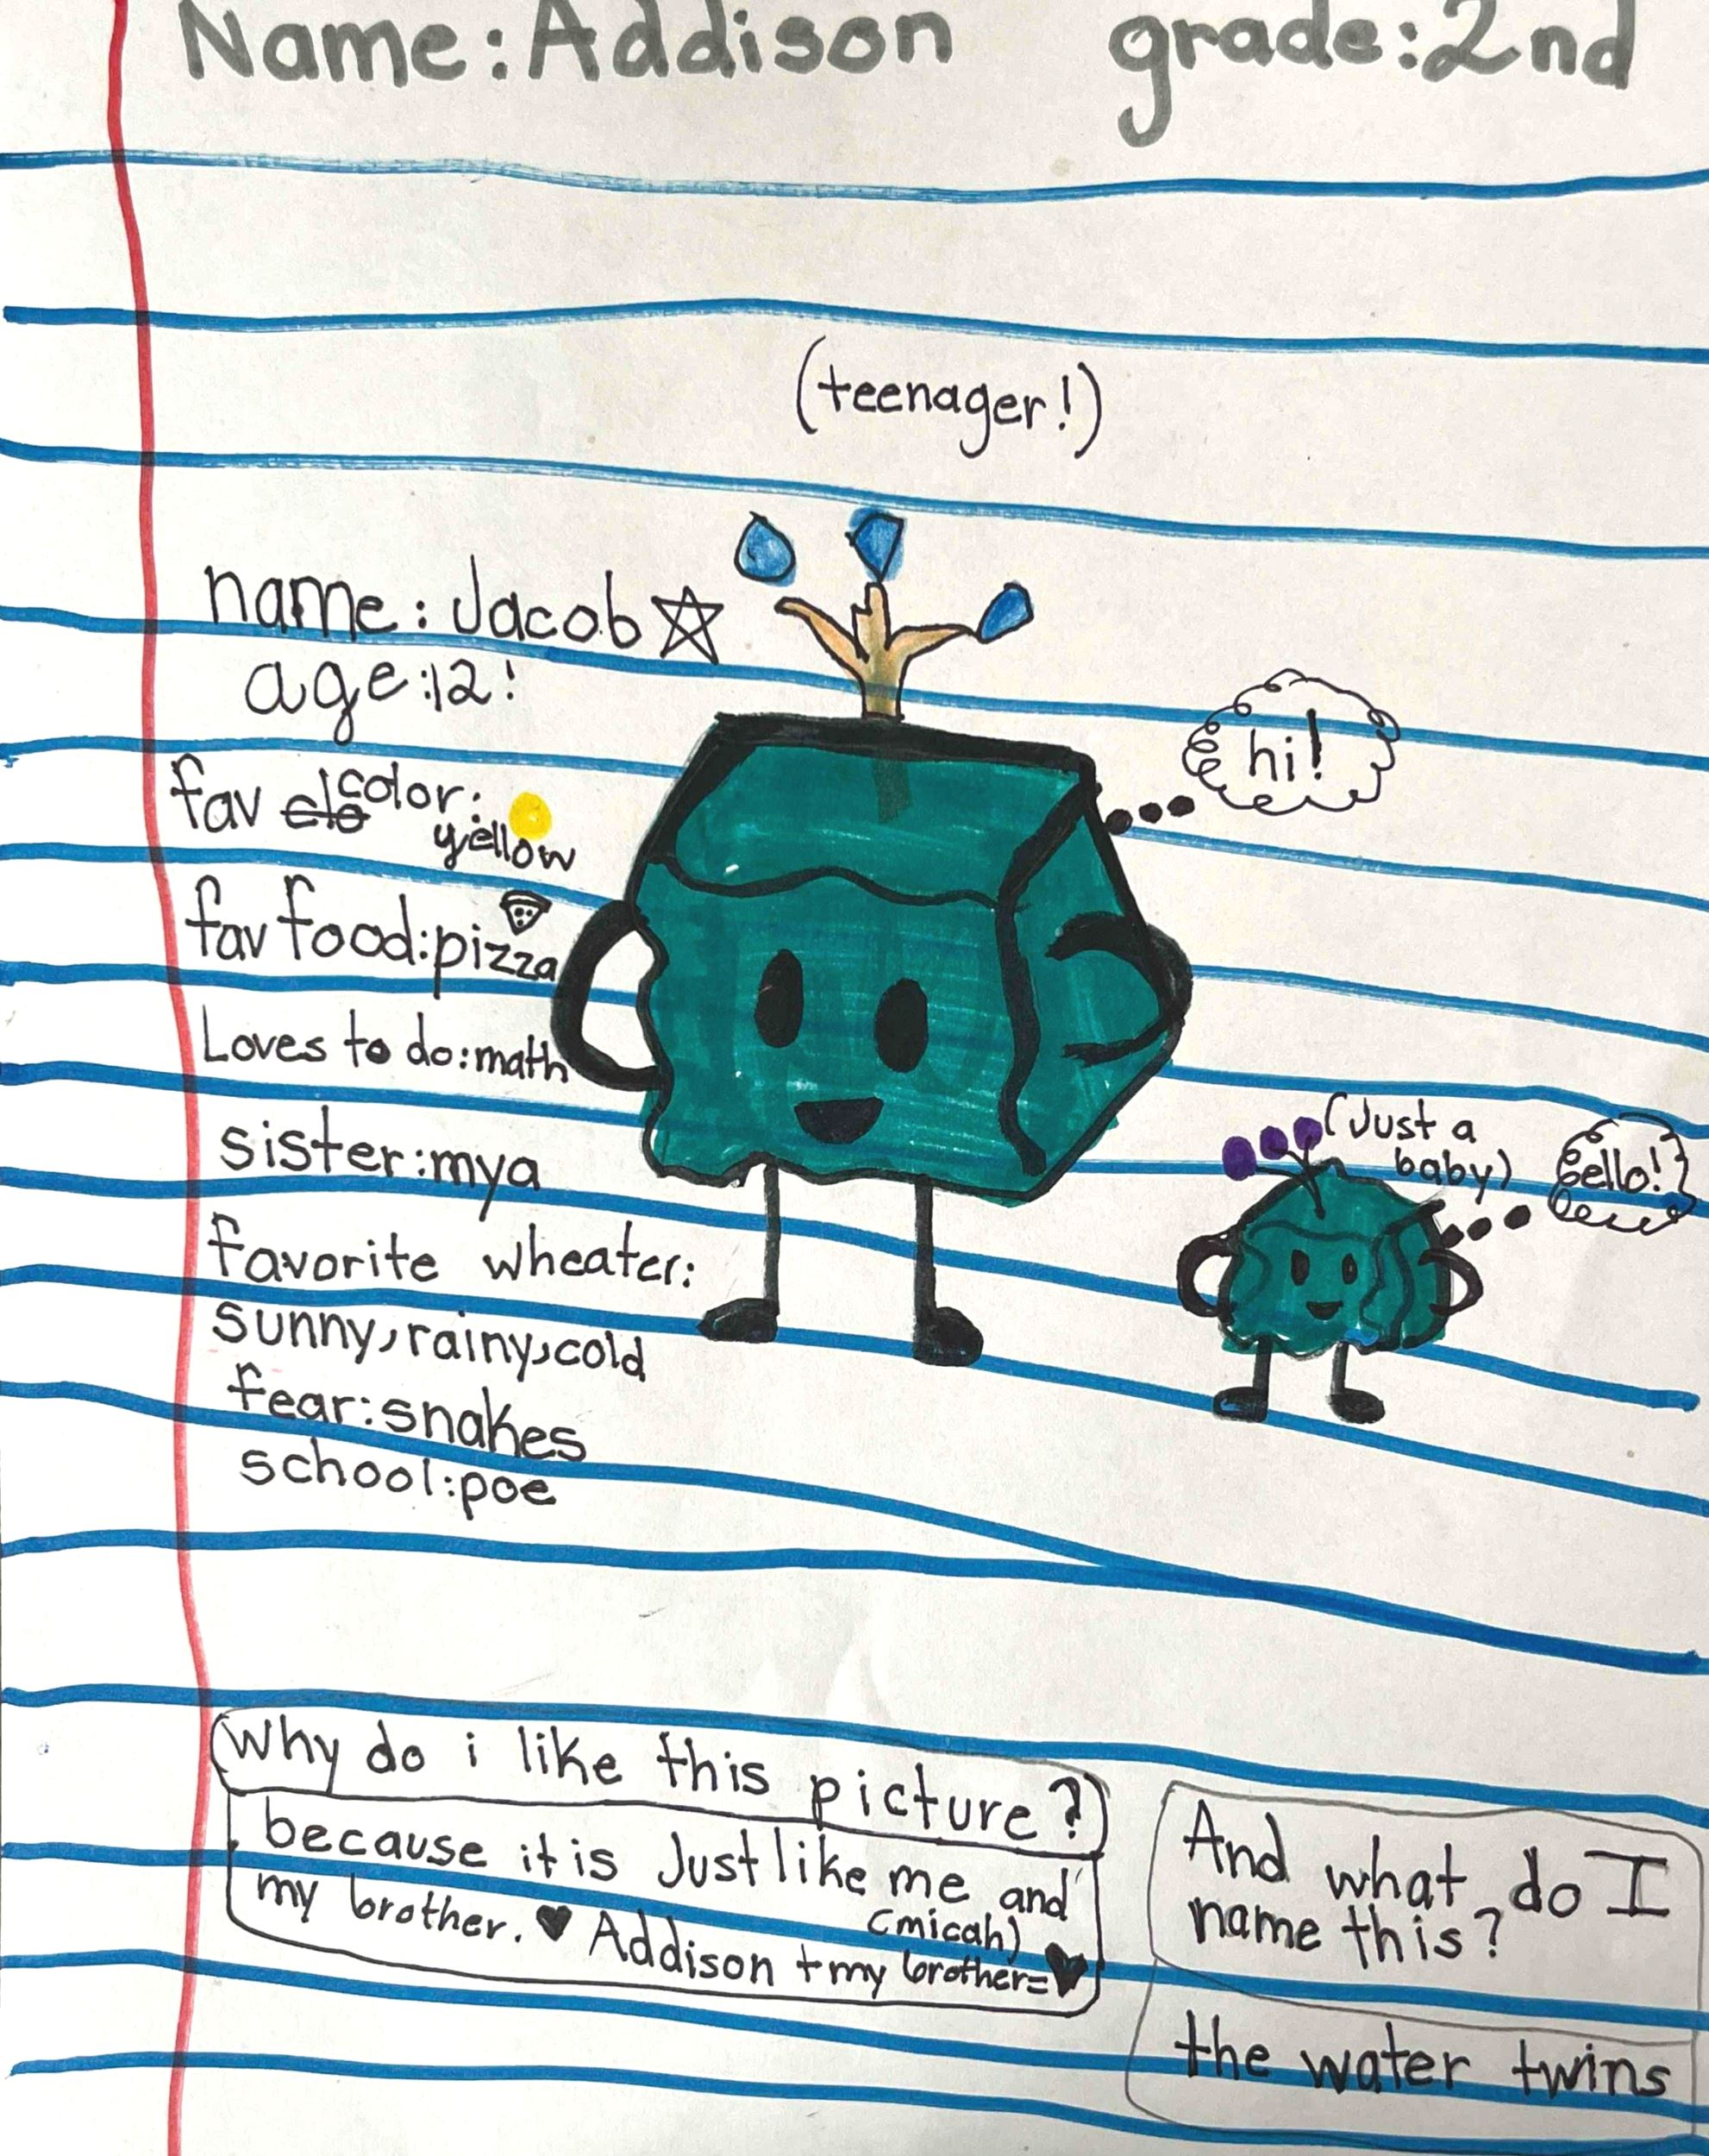 Name: Addison grade: 2nd
(teenager!)
name: Jacob
age: 12!
fav clo color:
yellow
fav food: pizza
Loves to do: math
sister: mya
favorite wheater:
sunny, rainy, cold
fear: snakes
school: poe
hi!
(Just a
baby)
hello!
Why do i like this picture?
because it is Just like me and
my brother. ♥ Addison + my brother = ♥
(micah)
And what do I
name this?
the water twins